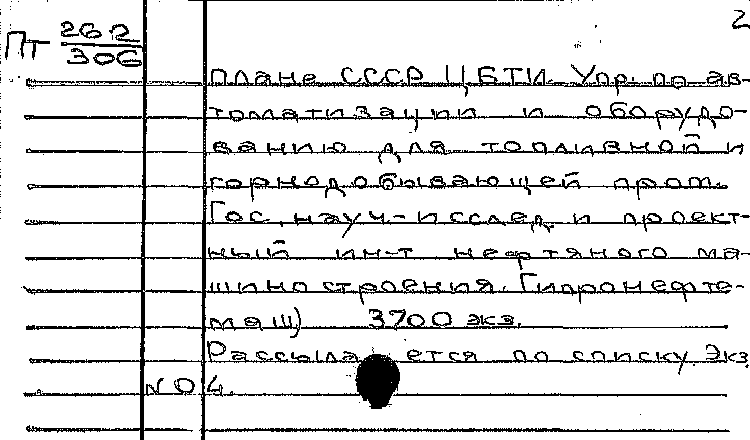 2
Пт 262
306
плане СССР ЦБТИ. Упр. по ав-
томатизации и оборудо-
ванию для топливной и
горнодобывающей пром.
Гос. науч.-исслед. и проект-
ный ин-т нефтяного ма-
шиностроения. Гипронефте-
маш) 3700 экз.
Рассылается по списку. Экз.
№ 04.